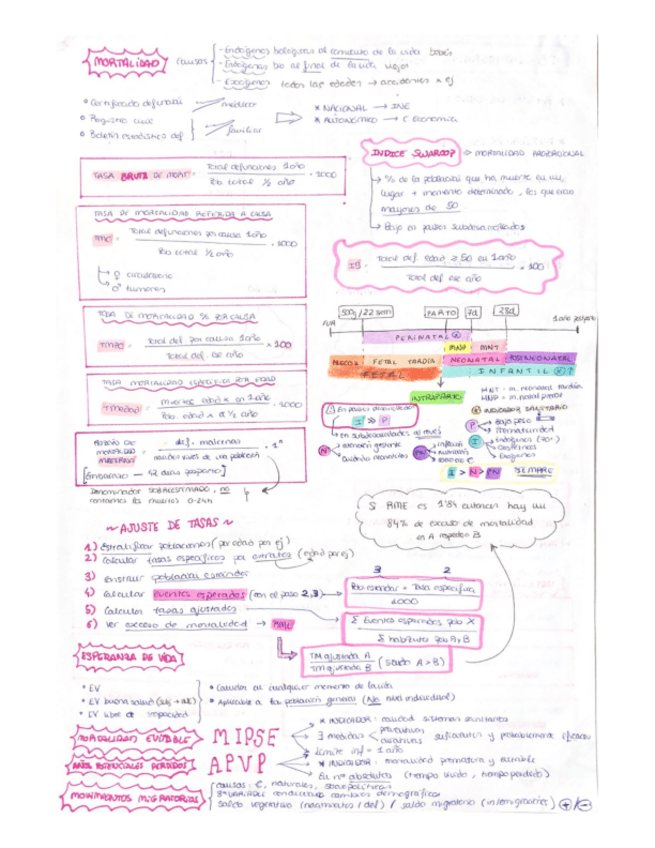 MORTALIDAD causas
- Endógenos biológicos al comienzo de la vida bebés
- Endógenos bio al final de la vida viejos
- Exógenos todas las edades → accidentes x ej
* Certificado defunción médico
* Registro civil
* Boletín estadístico def familiar
* NACIONAL → INE
* AUTONÓMICO → C Económica
TASA BRUTA DE MORT = Total defunciones 1 año / Pob total ½ año · 1000
INDICE SWAROOP → MORTALIDAD PROPORCIONAL
→ % de la población que ha muerto en un
lugar + momento determinado, los que eran
mayores de 50
→ Bajo en países subdesarrollados
IS = Total def edad ≥ 50 en 1 año / Total def ese año · 100
TASA DE MORTALIDAD REFERIDA A CAUSA
TMC = Total defunciones por causa 1 año / Pob total ½ año · 1000
♀ cardiovasc
♂ tumores
TASA DE MORTALIDAD % POR CAUSA
Total def por causa 1 año / Total def. ese año · 100
TASA MORTALIDAD ESPECÍFICA POR EDAD
TMedad = Muertes edad x en 1 año / Pob. edad x a ½ año · 1000
500g/22 sem PARTO 7d 28d 1 año
FUR
PERINATAL
MNP MNT
PRECOZ FETAL TARDÍA NEONATAL POSTNEONATAL
FETAL INFANTIL
INTRAPARTO
MNT: m. neonatal tardía
MNP: m. neonatal precoz
En países desarrollados
I >> P
en subdesarrollados al revés
INDICADOR SANITARIO
P Bajo peso
Prematuridad
N atención gestante
cuidados neonatales
PN infección
nutrición
I Endógenos (70%)
Exógenos
I > N > PN SIEMPRE
MORTALIDAD MATERNA = def. maternas / nacidos vivos de una población · 1ⁿ
[Embarazo – 42 días posparto]
Denominador SOBREESTIMADO, no
contamos los muertos 0-24h
~ AJUSTE DE TASAS ~
1) Estratificar poblaciones (por edad por ej)
2) Calcular tasas específicas por estratos (edad por ej)
3) Construir población estándar
4) Calcular eventos esperados (con el paso 2,3)
5) Calcular tasas ajustadas
6) Ver exceso de mortalidad → RME
Si RME es 1'84 entonces hay un
84% de exceso de mortalidad
en A respecto B
3 2
Pob estándar × Tasa específica / 1000
Σ Eventos esperados pob X / Σ habitantes pob A y B
TM ajustada A / TM ajustada B (siendo A > B)
ESPERANZA DE VIDA
* EV
* EV buena salud (subj → INE)
* EV libre de incapacidad
* Calcular en cualquier momento de la vida
* Aplicable a la población general (No nivel individual)
MORTALIDAD EVITABLE MIPSE
* INDICADOR: calidad sistemas sanitarios
∃ medidas preventivas
curativas suficientes y probablemente eficaces
Límite inf = 1 año
AÑOS POTENCIALES PERDIDOS APVP
* INDICADOR: mortalidad prematura y evitable
En nº absolutos (tiempo vivido, tiempo perdido)
MOVIMIENTOS MIGRATORIOS
causas: €, naturales, sociopolíticas
3ª VARIABLE condiciona cambios demográficos
Saldo vegetativo (nacimientos / def) / saldo migratorio (inmigrantes) +/-